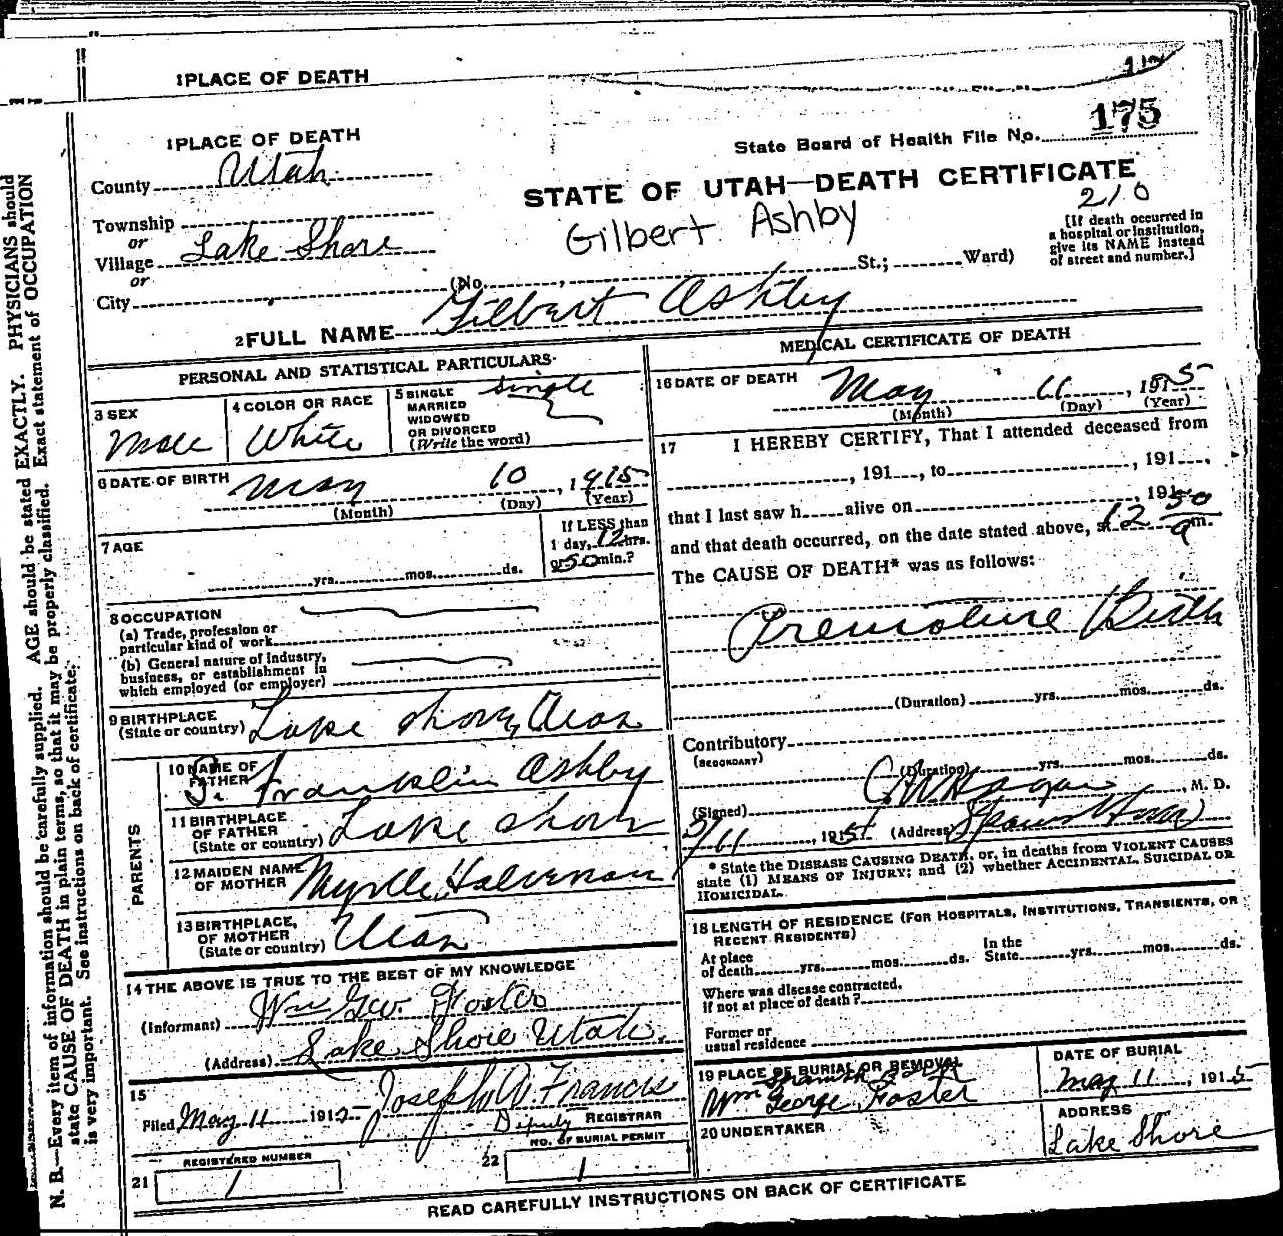 1 PLACE OF DEATH
1 PLACE OF DEATH
State Board of Health File No. 175
County Utah
STATE OF UTAH—DEATH CERTIFICATE
210
Township
or
Village Lake Shore
or
City
Gilbert Ashby
[If death occurred in
a hospital or institution,
give its NAME instead
of street and number.]
(No. St.; Ward)
2 FULL NAME Gilbert Ashby
PERSONAL AND STATISTICAL PARTICULARS
3 SEX
Male
4 COLOR OR RACE
White
5 SINGLE
MARRIED
WIDOWED
OR DIVORCED
(Write the word)
Single
6 DATE OF BIRTH
May 10, 1915
(Month) (Day) (Year)
7 AGE
yrs. mos. ds.
If LESS than
1 day, 12 hrs.
or 50 min.?
8 OCCUPATION
(a) Trade, profession or
particular kind of work
(b) General nature of industry,
business, or establishment in
which employed (or employer)
9 BIRTHPLACE
(State or country) Lake Shore, Utah
PARENTS
10 NAME OF
FATHER
S. Franklin Ashby
11 BIRTHPLACE
OF FATHER
(State or country) Lake Shore
12 MAIDEN NAME
OF MOTHER Myrtle Halvenson
13 BIRTHPLACE,
OF MOTHER
(State or country) Utah
14 THE ABOVE IS TRUE TO THE BEST OF MY KNOWLEDGE
(Informant) Wm Geo. Foster
(Address) Lake Shore Utah.
15
Filed May 11 191 Joseph A Francis
Deputy REGISTRAR
REGISTERED NUMBER
21 1
NO. OF BURIAL PERMIT
22 1
MEDICAL CERTIFICATE OF DEATH
16 DATE OF DEATH
May 11, 1915
(Month) (Day) (Year)
17 I HEREBY CERTIFY, That I attended deceased from
, 191 , to , 191 ,
that I last saw h alive on , 191
and that death occurred, on the date stated above, at 12 50 a m.
The CAUSE OF DEATH* was as follows:
Premature Birth
(Duration) yrs. mos. ds.
Contributory
(SECONDARY)
(Duration) yrs. mos. ds.
(Signed) Hagan, M. D.
5/11, 1915 (Address)
* State the DISEASE CAUSING DEATH, or, in deaths from VIOLENT CAUSES
state (1) MEANS OF INJURY; and (2) whether ACCIDENTAL, SUICIDAL OR
HOMICIDAL.
18 LENGTH OF RESIDENCE (FOR HOSPITALS, INSTITUTIONS, TRANSIENTS, OR
RECENT RESIDENTS)
At place
of death yrs. mos. ds.
In the
State yrs. mos. ds.
Where was disease contracted,
if not at place of death?
Former or
usual residence
19 PLACE OF BURIAL OR REMOVAL
Spanish Fork
Wm George Foster
DATE OF BURIAL
May 11, 1915
20 UNDERTAKER
ADDRESS
Lake Shore
READ CAREFULLY INSTRUCTIONS ON BACK OF CERTIFICATE
N. B.—Every item of information should be carefully supplied. AGE should be stated EXACTLY. PHYSICIANS should
state CAUSE OF DEATH in plain terms, so that it may be properly classified. Exact statement of OCCUPATION
is very important. See instructions on back of certificate.